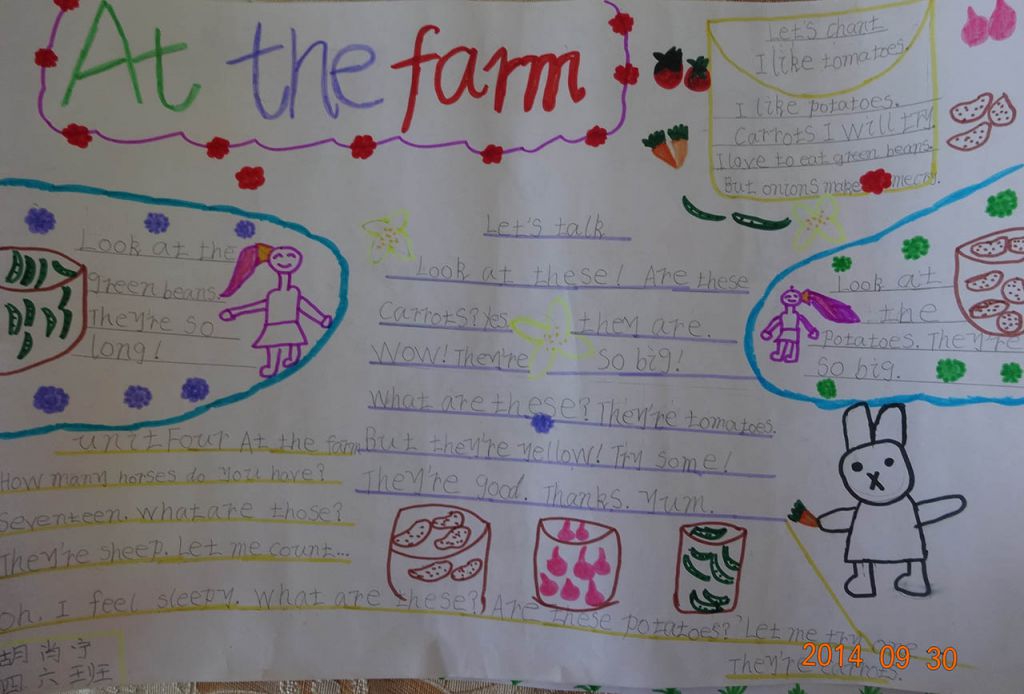 At the farm
Let's chant
I like tomatoes.
I like potatoes.
Carrots I will try.
I love to eat green beans.
But onions make me cry.
Look at the
green beans.
They're so
long!
Let's talk
Look at these! Are these
Carrots? Yes, they are.
Wow! They're so big!
What are these? They're tomatoes.
But they're yellow! Try some!
They're good. Thanks. Yum.
Look at
the
Potatoes. They're
so big.
unit Four At the farm
How many horses do you have?
Seventeen. What are those?
They're sheep. Let me count...
Oh, I feel sleepy. What are these? Are these potatoes? Let me try
They're carrots.
胡尚宁
四六班
2014 09 30